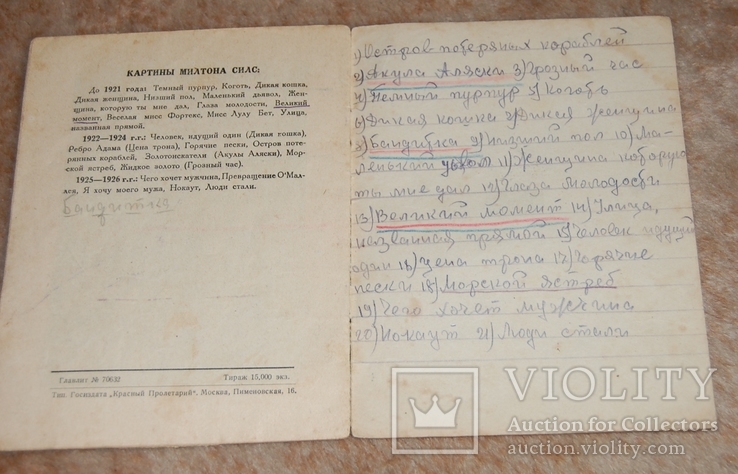 КАРТИНЫ МИЛТОНА СИЛС:
До 1921 года: Темный пурпур, Коготь, Дикая кошка,
Дикая женщина, Низший пол, Маленький дьявол, Жен-
щина, которую ты мне дал, Глава молодости, Великий
момент, Веселая мисс Фортекс, Мисс Лулу Бет, Улица,
названная прямой.
1922—1924 г.г.: Человек, идущий один (Дикая кошка),
Ребро Адама (Цена трона), Горячие пески, Остров поте-
рянных кораблей, Золотоискатели (Акулы Аляски), Мор-
ской ястреб, Жидкое золото (Грозный час).
1925—1926 г.г.: Чего хочет мужчина, Превращение О'Мал-
лея, Я хочу моего мужа, Нокаут, Люди стали.
бандитка
Главлит № 70632 Тираж 15.000 экз.
Тип. Госиздата „Красный Пролетарий", Москва, Пименовская, 16.
1) Остров потеряных кораблей
2) Акула Аляски 3) Грозный час
4) Темный пурпур 5) Коготь
6) Дикая кошка 7) Дикая женщина
8) Бандитка 9) Низший пол 10) Ма-
ленький дьявол 11) Женщина которую
ты мне дал 12) Глаза молодости
13) Великий момент 14) Улица,
названная прямой 15) Человек идущий
один 16) Цена трона 17) Горячие
пески 18) Морской ястреб
19) Чего хочет мужчина
20) Нокаут 21) Люди стали
VIOLITY
Auction for Collectors
auction.violity.com